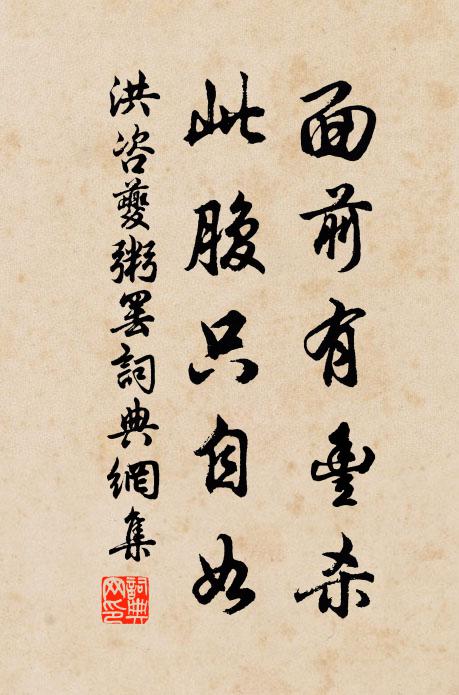 面前有豊杀
此腹只自如
洪咨夔粥罢詞典網集
詞典網印